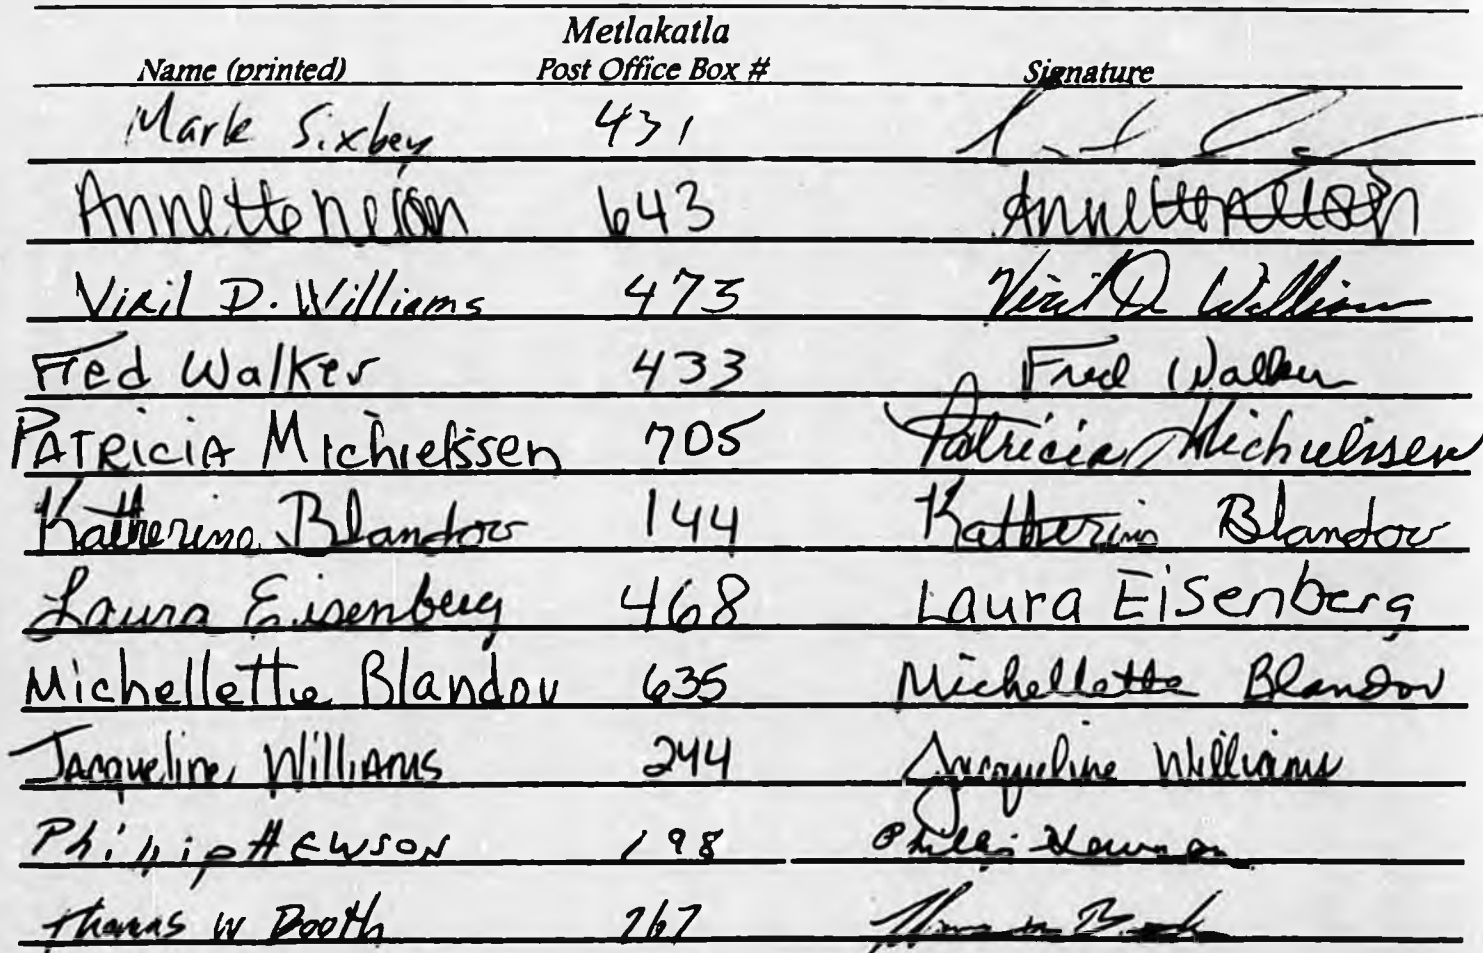 Metlakatla
Name (printed) Post Office Box # Signature
Mark Sixbey 431
Annette Nelson 643 Annette Nelson
Viril D. Williams 473 Viril D Williams
Fred Walker 433 Fred Walker
PATRICIA Michielssen 705 Patricia Michielssen
Katherine Blandov 144 Katherine Blandov
Laura Eisenberg 468 Laura Eisenberg
Michellette Blandov 635 Michellette Blandov
Jacqueline Williams 244 Jacqueline Williams
Phillip HEWSON 198 Phillip Hewson
Thomas W Booth 767